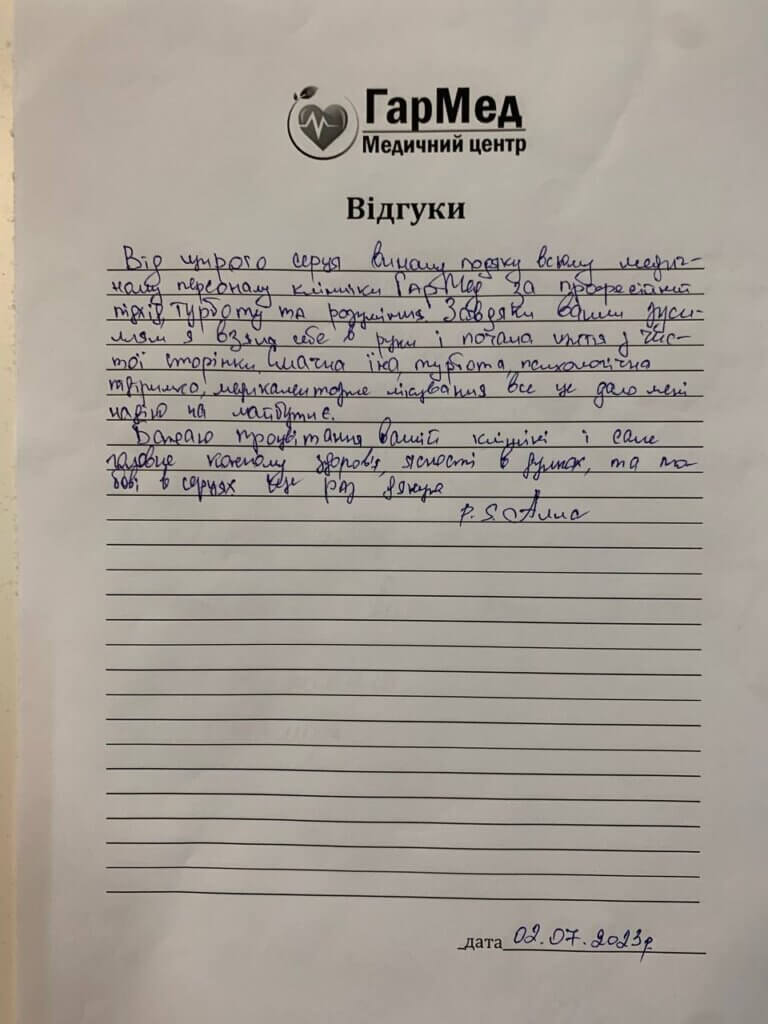 ГарМед
Медичний центр
Відгуки
Від щирого серця виношу подяку всьому медич-
ному персоналу клініки ГарМед за професійний
підхід, турботу та розуміння. Завдяки вашим зуси-
лям я взяла себе в руки і почала життя з чис-
тої сторінки, смачна їжа, турбота психологічна
підтримка, медикаментозне лікування все це дало мені
надію на майбутнє.
Бажаю процвітання вашій клініці і саме
головне кожному здоров'я, ясності в думках, та лю
бові в серцях ще раз дякую
P.S. Алла
дата 02.07.2023р